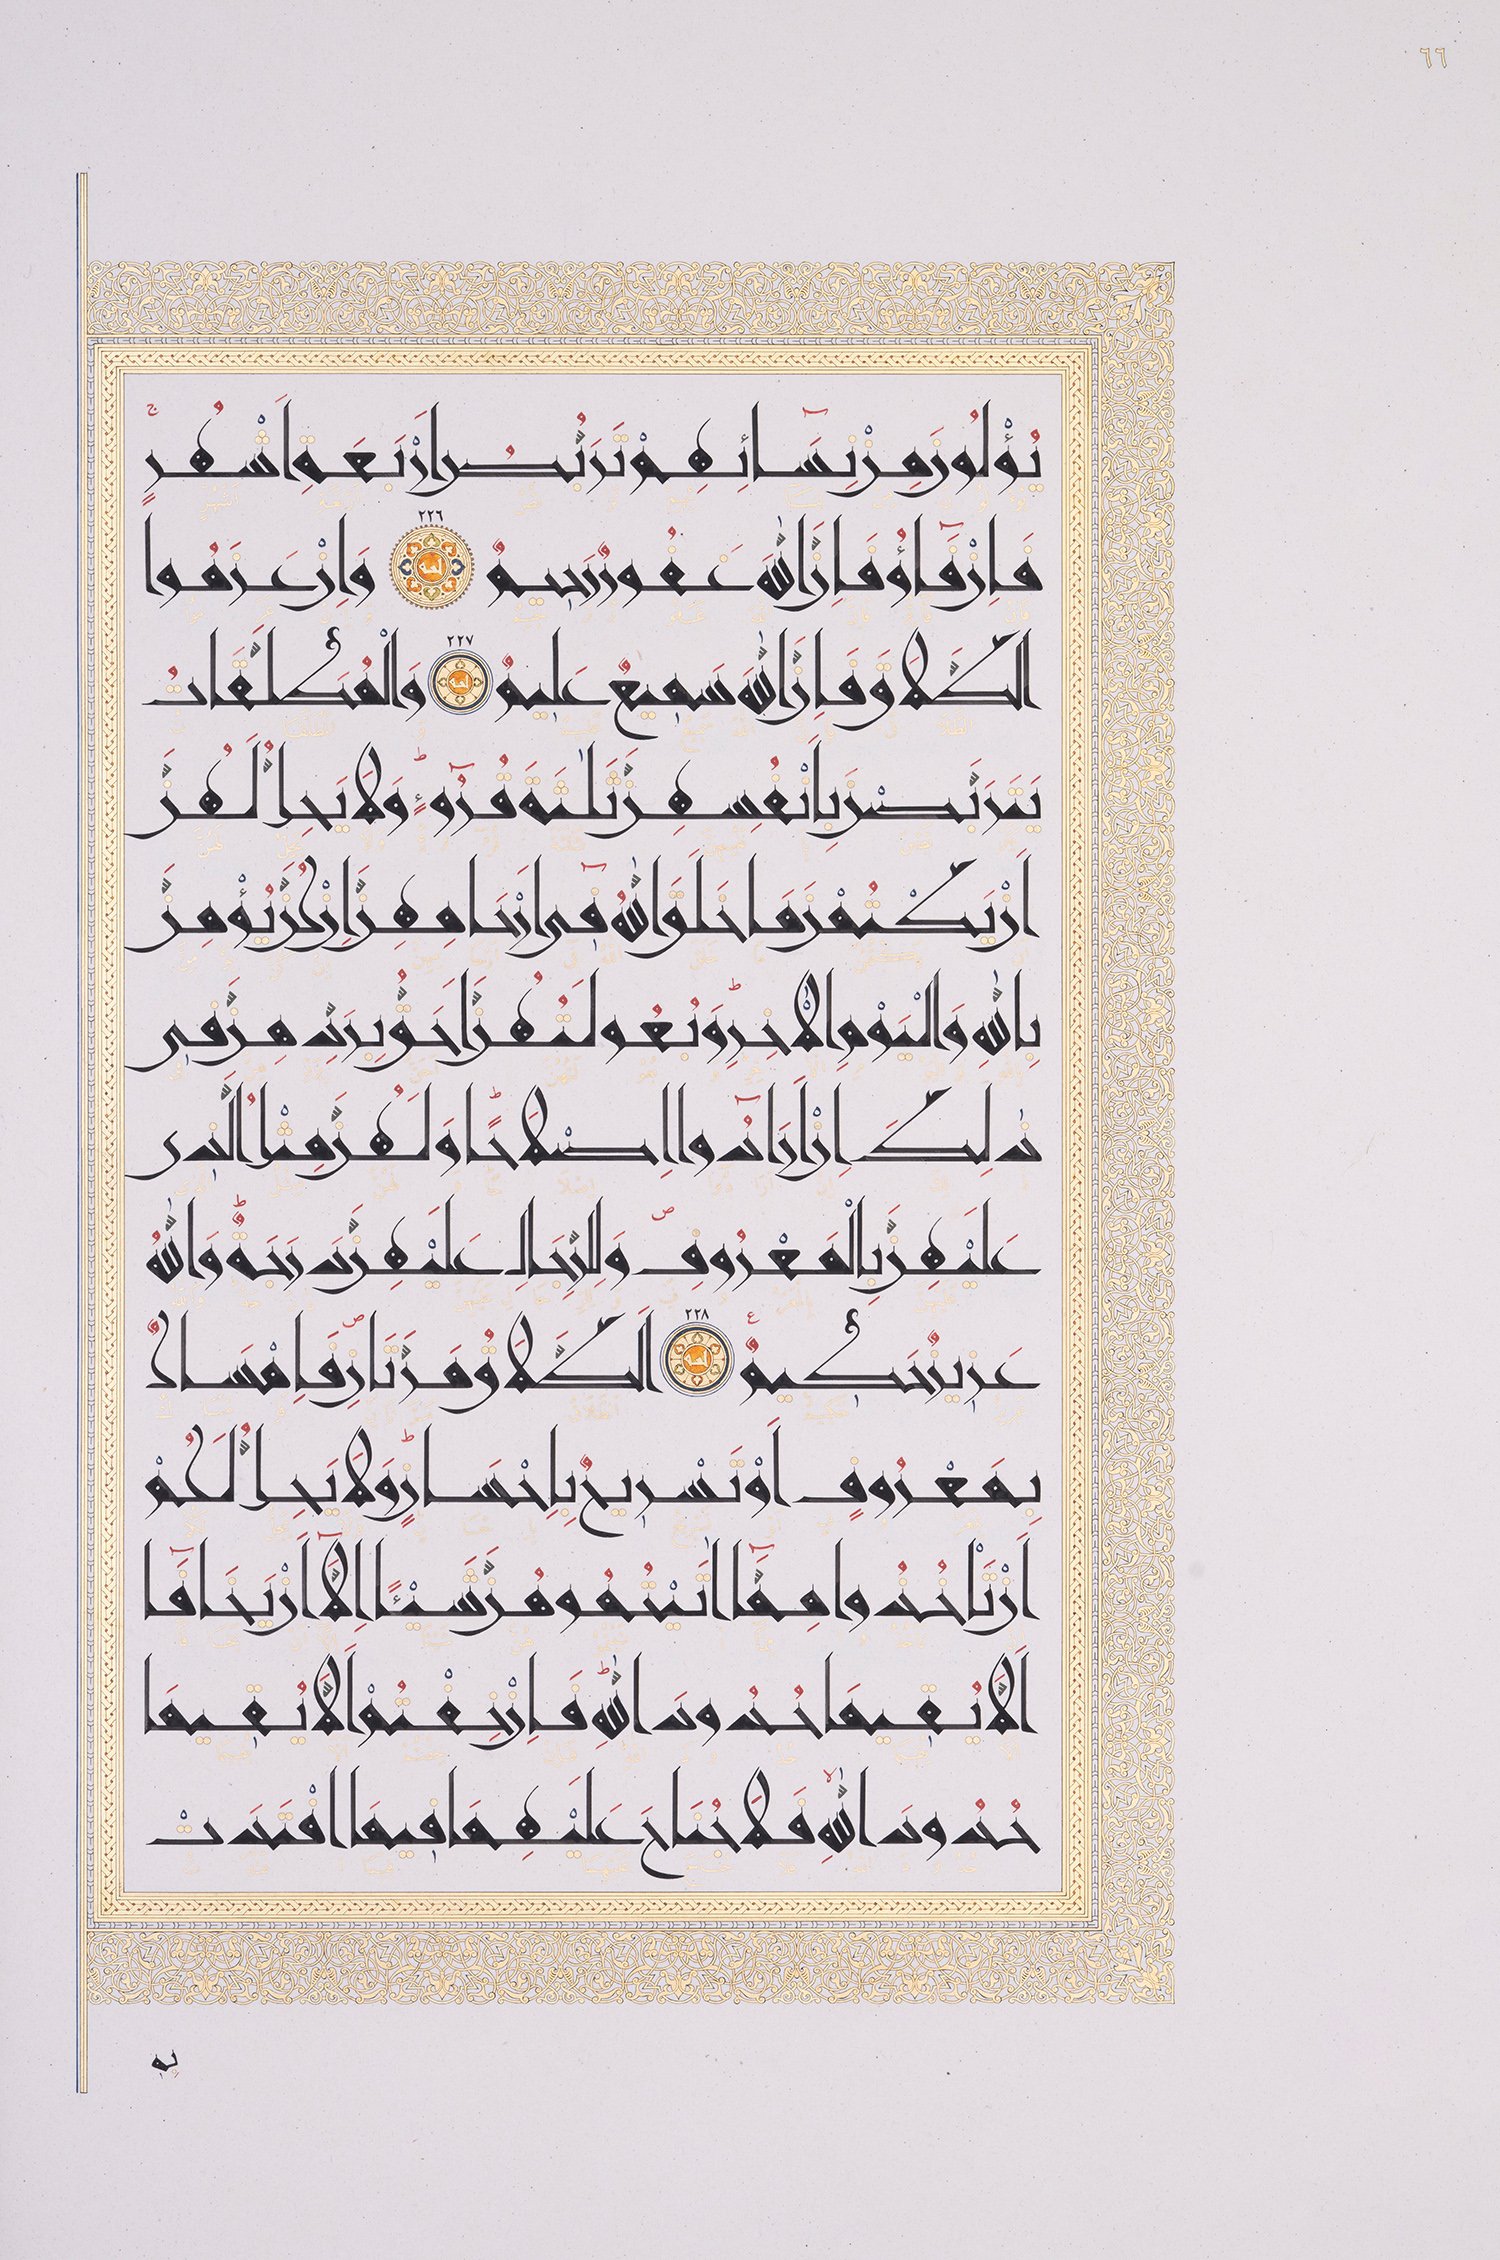 ٦٦
يُؤْلُونَ مِنْ نِسَآئِهِمْ تَرَبُّصُ اَرْبَعَةِ اَشْهُرٍۚ
فَاِنْ فَآؤُ فَاِنَّ اللّٰهَ غَفُورٌ رَحِيمٌ ٢٢٦ وَاِنْ عَزَمُوا
الطَّلَاقَ فَاِنَّ اللّٰهَ سَمِيعٌ عَلِيمٌ ٢٢٧ وَالْمُطَلَّقَاتُ
يَتَرَبَّصْنَ بِاَنْفُسِهِنَّ ثَلٰثَةَ قُرُٓوءٍۜ وَلَا يَحِلُّ لَهُنَّ
اَنْ يَكْتُمْنَ مَا خَلَقَ اللّٰهُ فِٓى اَرْحَامِهِنَّ اِنْ كُنَّ يُؤْمِنَّ
بِاللّٰهِ وَالْيَوْمِ الْاٰخِرِۜ وَبُعُولَتُهُنَّ اَحَقُّ بِرَدِّهِنَّ فِى
ذٰلِكَ اِنْ اَرَادُٓوا اِصْلَاحًاۜ وَلَهُنَّ مِثْلُ الَّذِى
عَلَيْهِنَّ بِالْمَعْرُوفِۖ وَلِلرِّجَالِ عَلَيْهِنَّ دَرَجَةٌۜ وَاللّٰهُ
عَزِيزٌ حَكِيمٌ ٢٢٨ اَلطَّلَاقُ مَرَّتَانِۖ فَاِمْسَاكٌ
بِمَعْرُوفٍ اَوْ تَسْرِيحٌ بِاِحْسَانٍۜ وَلَا يَحِلُّ لَكُمْ
اَنْ تَاْخُذُوا مِمَّٓا اٰتَيْتُمُوهُنَّ شَيْـًٔا اِلَّٓا اَنْ يَخَافَٓا
اَلَّا يُقِيمَا حُدُودَ اللّٰهِۜ فَاِنْ خِفْتُمْ اَلَّا يُقِيمَا
حُدُودَ اللّٰهِۙ فَلَا جُنَاحَ عَلَيْهِمَا فِيمَا افْتَدَتْ
بِهِ